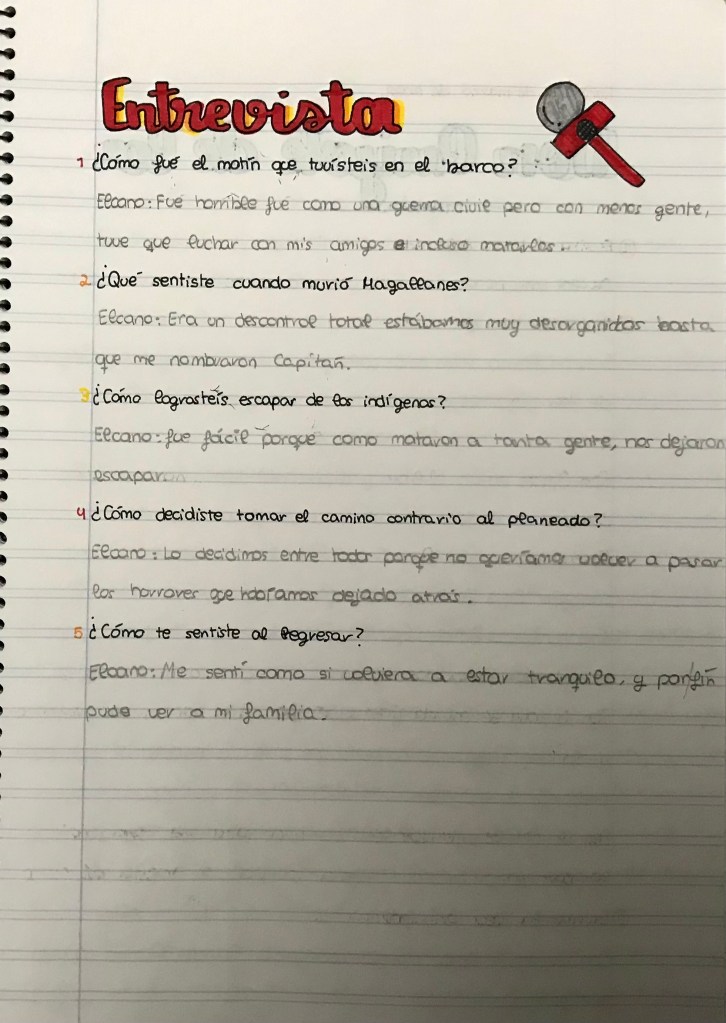 Entrevista
1 ¿Cómo fué el motín que tuvísteis en el barco?
Elcano: Fué horrible fué como una guerra civil pero con menos gente,
tuve que luchar con mis amigos e incluso matarlos.
2 ¿Qué sentiste cuando murió Magallanes?
Elcano: Era un descontrol total estábamos muy desorganidos hasta
que me nombraron Capitañ.
3 ¿Cómo lograsteís escapar de los indígenas?
Elcano: fue fácil porqué como mataron a tanta gente, nos dejaron
escapar.
4 ¿Cómo decidiste tomar el camino contrario al planeado?
Elcano: Lo decidimos entre todos porque no queríamos volver a pasar
los horrores que habíamos dejado atrás.
5 ¿Cómo te sentiste al regresar?
Elcano: Me sentí como si volviera a estar tranquilo, y porfin
pude ver a mi familia.